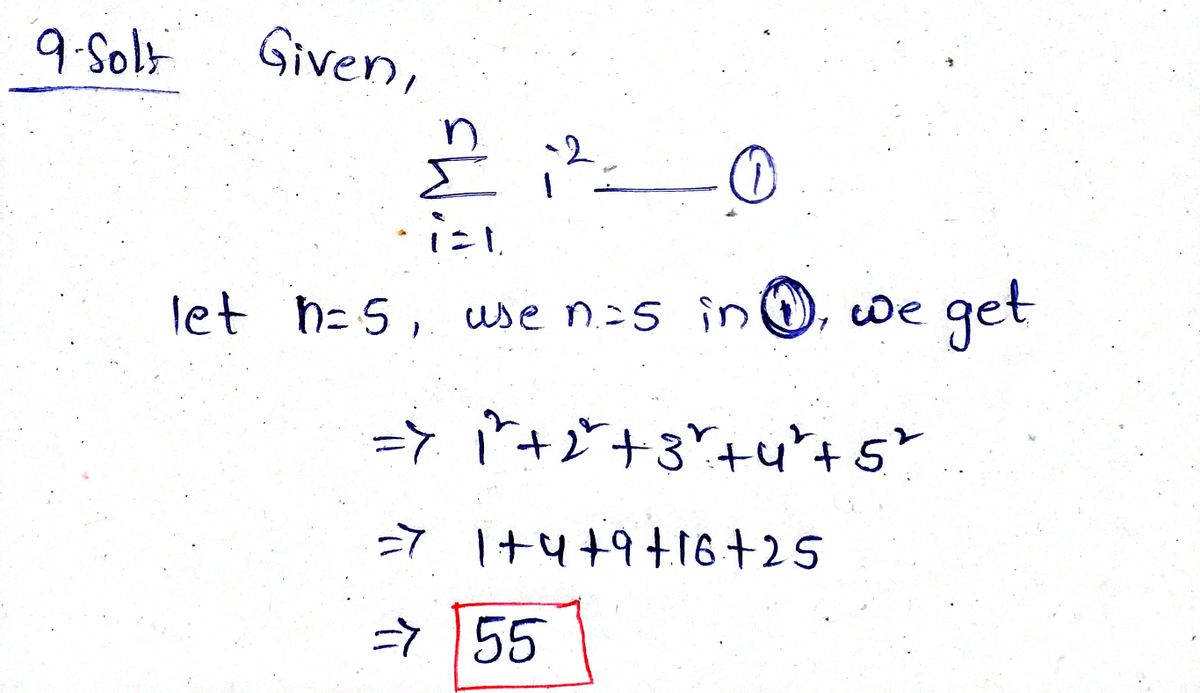 9-Sol:- Given,
n
Σ i² —— ①
i=1
let n=5, use n=5 in ①, we get
=> 1²+2²+3²+4²+5²
=> 1+4+9+16+25
=> 55